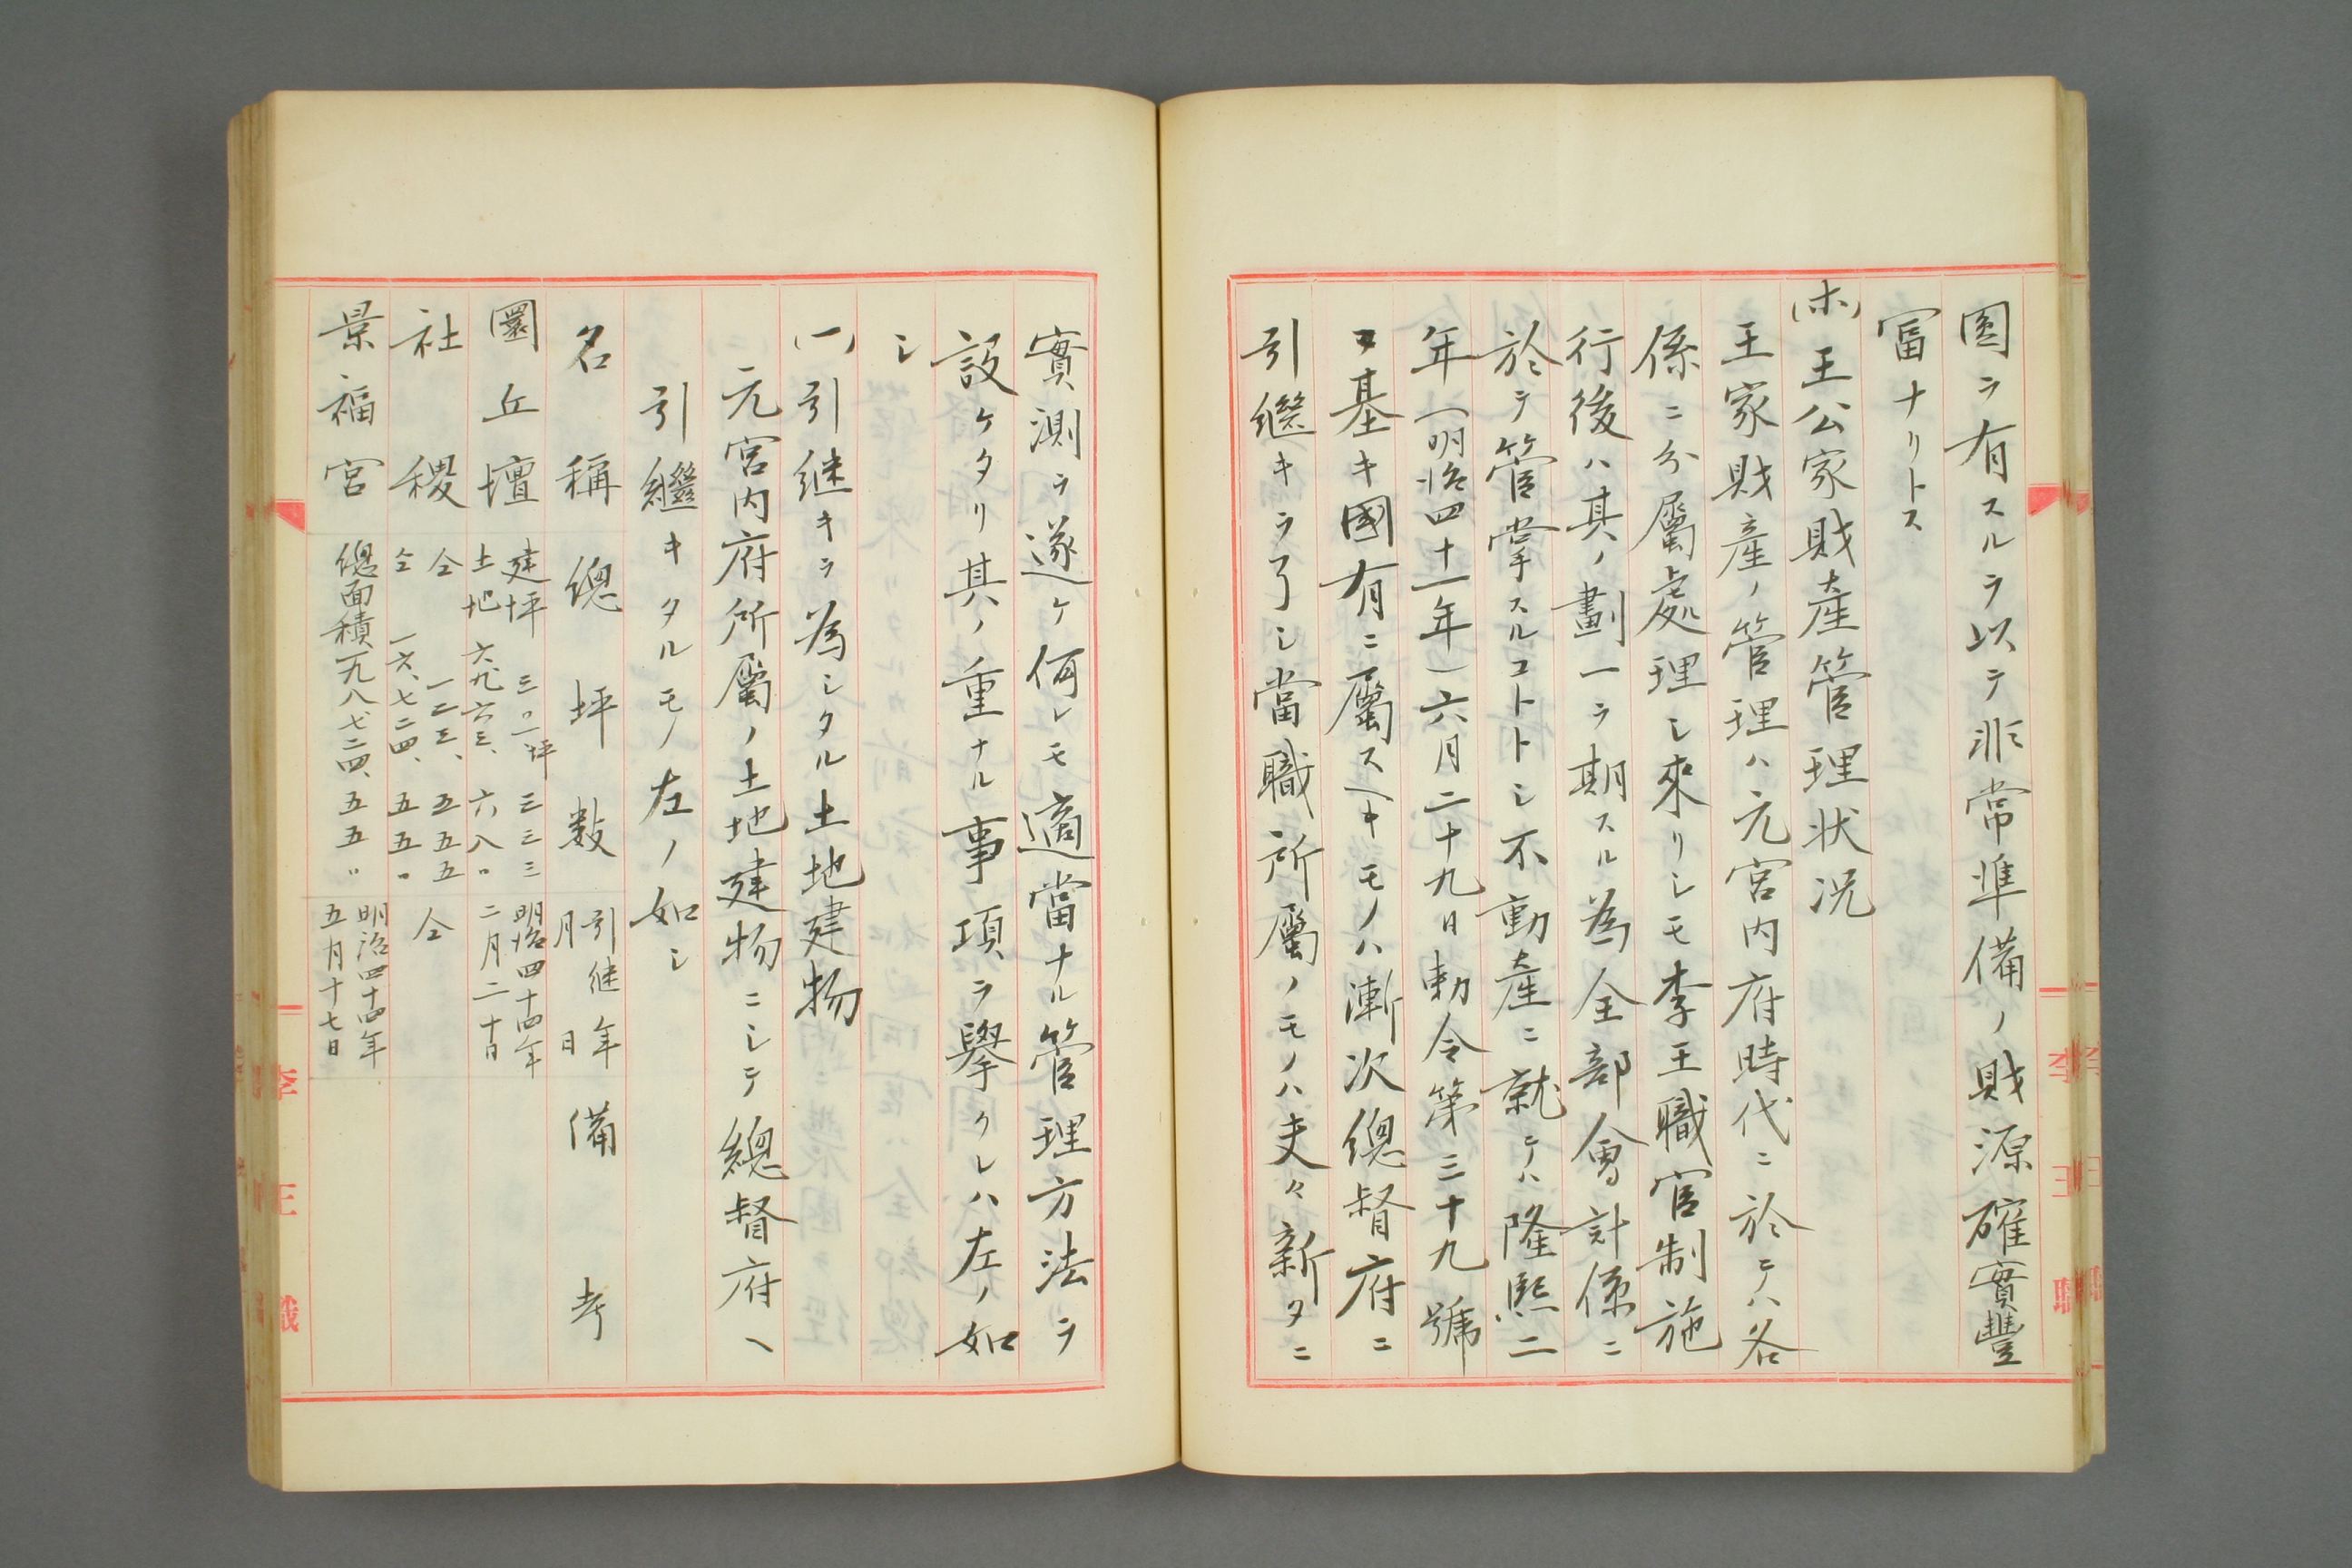 圓ヲ有スルヲ以テ非常準備ノ財源確實豐
富ナリトス
(ホ)王公家財産管理状况
王家財産ノ管理ハ元宮内府時代ニ於テハ各
係ニ分屬處理シ來リシモ李王職官制施
行後ハ其ノ劃一ヲ期スル為全部會計係ニ
於テ管掌スルコトトシ不動産ニ就テハ隆熙二
年(明治四十一年)六月二十九日勅令第三十九號
ニ基キ國有ニ屬スヘキモノハ漸次總督府ニ
引繼キヲ了シ當職所屬ノモノハ夫々新タニ
實測ヲ遂ケ何レモ適當ナル管理方法ヲ
設ケタリ其ノ重ナル事項ヲ擧クレハ左ノ如
シ
(一)引継キヲ為シタル土地建物
元宮内府所屬ノ土地建物ニシテ總督府ヘ
引繼キタルモノ左ノ如シ
名稱 總坪數 引継年月日 備考
圜丘壇 建坪 三〇一坪三三三 土地 六九六三、六八〇 明治四十四年二月二十日
社稷 仝 一二三、五五五 仝 一六、七二四、五五〇 仝
景福宮 總面積一九八七二四、五五〇 明治四十四年五月十七日
李王職
李王職